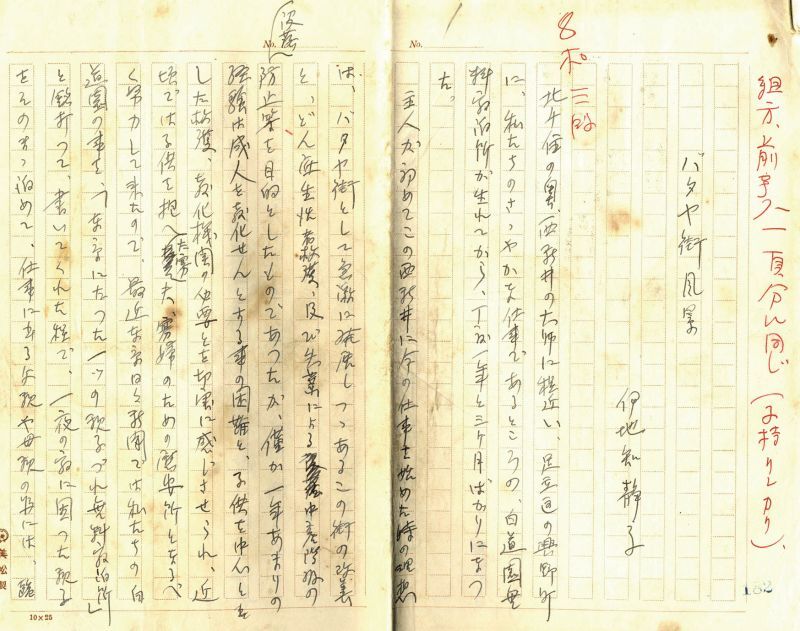 組方、前号ノ一頁分に同じ（子持リーカク）、
8ポ三段
バタヤ街風景
伊地知静子
北千住の奥、西新井の大師に程近い、足立区の興野町
に、私たちのさゝやかな仕事であるところの、白道園無
料宿泊所が生れてから、丁度一年と三ヶ月ばかりになつ
た。
主人が初めてこの西新井に今の仕事を始めた時の理想
No.
1
152
は、バタヤ街として急激に発展しつゝあるこの街の改善
と、どん底生活者救護、及び失業による中産階級の
防止等を目的としたものであつたが、僅か一年あまりの
経験は成人を教化せんとする事の困難と、子供を中心とを
した救護、教化機関の必要とを切実に感じさせられ、近
頃では子供を抱へた寡婦のための慰安所となるべ
く努力して来たので、最近東京日々新聞では私たちの白
道園の事を「東京にたつた一つの親子づれ無料宿泊所」
と銘打つて、書いてくれた程で、一夜の宿に困つた親子
をそのまゝ泊めて、仕事に出る父親や母親の為には、
No.
10×25
美松製